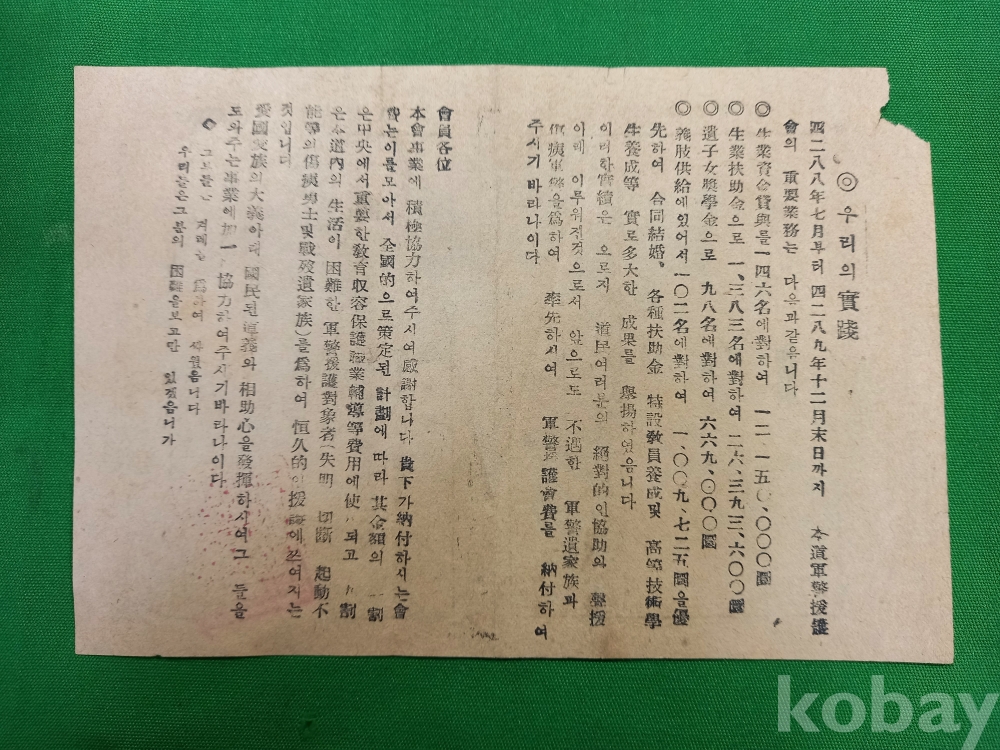 ◎ 우리의 實踐
四二八八年七月부터 四二八九年十二月末日까지 本道軍警援護
會의 重要業務는 다음과같읍니다
◎ 生業資金貸與를一四六名에對하여 一二、一五〇、〇〇〇圜
◎ 生業扶助金으로 一、三八三名에對하여 二六、三九三、六〇〇圜
◎ 遺子女奬學金으로 九八名에對하여 六六九、〇〇〇圜
◎ 義肢供給에있어서一〇二名에對하여 一、〇〇九、七二五圜을優
先하여 合同結婚、各種扶助金 特設敎員養成및 高等技術學
生養成等 實로多大한 成果를 擧揚하였읍니다
이러한實績은 오로지 道民여러분의 絕對的인協助와 聲援
아래 이루워진것으로서 앞으로도 不遇한 軍警遺家族과
傷痍軍警을爲하여 率先하시여 軍警援護會費를 納付하여
주시기 바라나이다
會員各位
本會事業에 積極協力하여주시여感謝합니다 貴下가納付하시는會
費는이를모아서 全國的으로策定된 計劃에 따라 其金額의 割
은中央에서重要한敎育収容保護職業輔導等費用에使 되고 割
은本道內의 生活이 困難한 軍警援護對象者(失明 切斷 起動不
能等의傷痍勇士및戰歿遺家族)를爲하여 恒久的인援護에쓰여지는
것입니다
愛國民族의大義아래 國民된道義와 相助心을發揮하시여그 들을
도와주는事業에加一 協力하여주시기바라나이다
◇ 그분들은 겨레를 爲하여 싸웠읍니다
우리들은그분의 困難을보고만 있겠읍니가
kobay